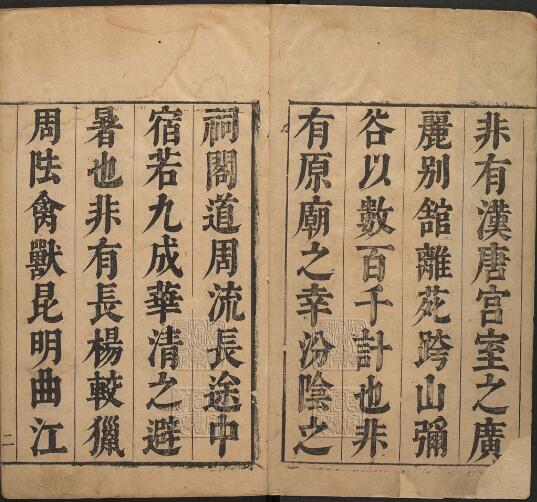 非有漢唐宫室之廣
麗别舘離苑跨山彌
谷以數百千計也非
有原廟之幸汾陰之
祠閣道周流長途中
宿若九成華清之避
暑也非有長楊較獵
周阹禽獸昆明曲江
二